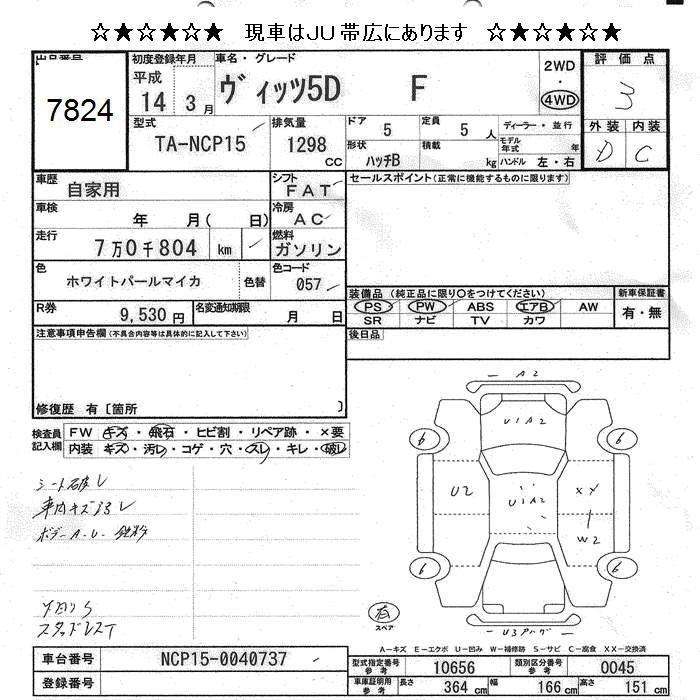 ☆★☆★☆★ 現車はJU帯広にあります ☆★☆★☆★
出品番号
7824
初度登録年月
平成
14 3月
車名・グレード
ヴィッツ5D F
2WD
・
4WD
評価点
3
型式
TA-NCP15
排気量
1298
CC
ドア 5
定員 5 人
ディーラー・並行
形状
ハッチB
積載
kg
モデル年式 年
ハンドル 左・右
外装 内装
D C
車歴
自家用
シフト
FAT
車検
年 月( 日)
冷房
AC
走行
7万0千804 km
燃料
ガソリン
色
ホワイトパールマイカ
色替
色コード
057
R券
9,530 円
名変通知期限
月 日
セールスポイント(正常に機能するものに限ります)
装備品 (純正品に限り○をつけてください)
新車保証書
PS PW ABS エアB AW
有・無
SR ナビ TV カワ
後日品
注意事項申告欄(不具合内容等は具体的に記入して下さい)
修復歴 有〔箇所 〕
検査員
記入欄
FW キズ・飛石・ヒビ割・リペア跡・×要
内装 キズ・汚レ・コゲ・穴・スレ・キレ・破レ
シート破レ
車内キズヨゴレ
ボデーA・U・鉄粉
スタッドレス
A2
U1A2
6
6
U2
U1A2
XY
W2
6
6
有
スペア
A-キズ E-エクボ U-凹み W-補修跡 S-サビ C-腐食 XX-交換済
車台番号
NCP15-0040737
登録番号
型式指定番号
参考
10656
類別区分番号
参考
0045
車庫証明用
参考
長さ 364 cm
幅 166 cm
高さ 151 cm